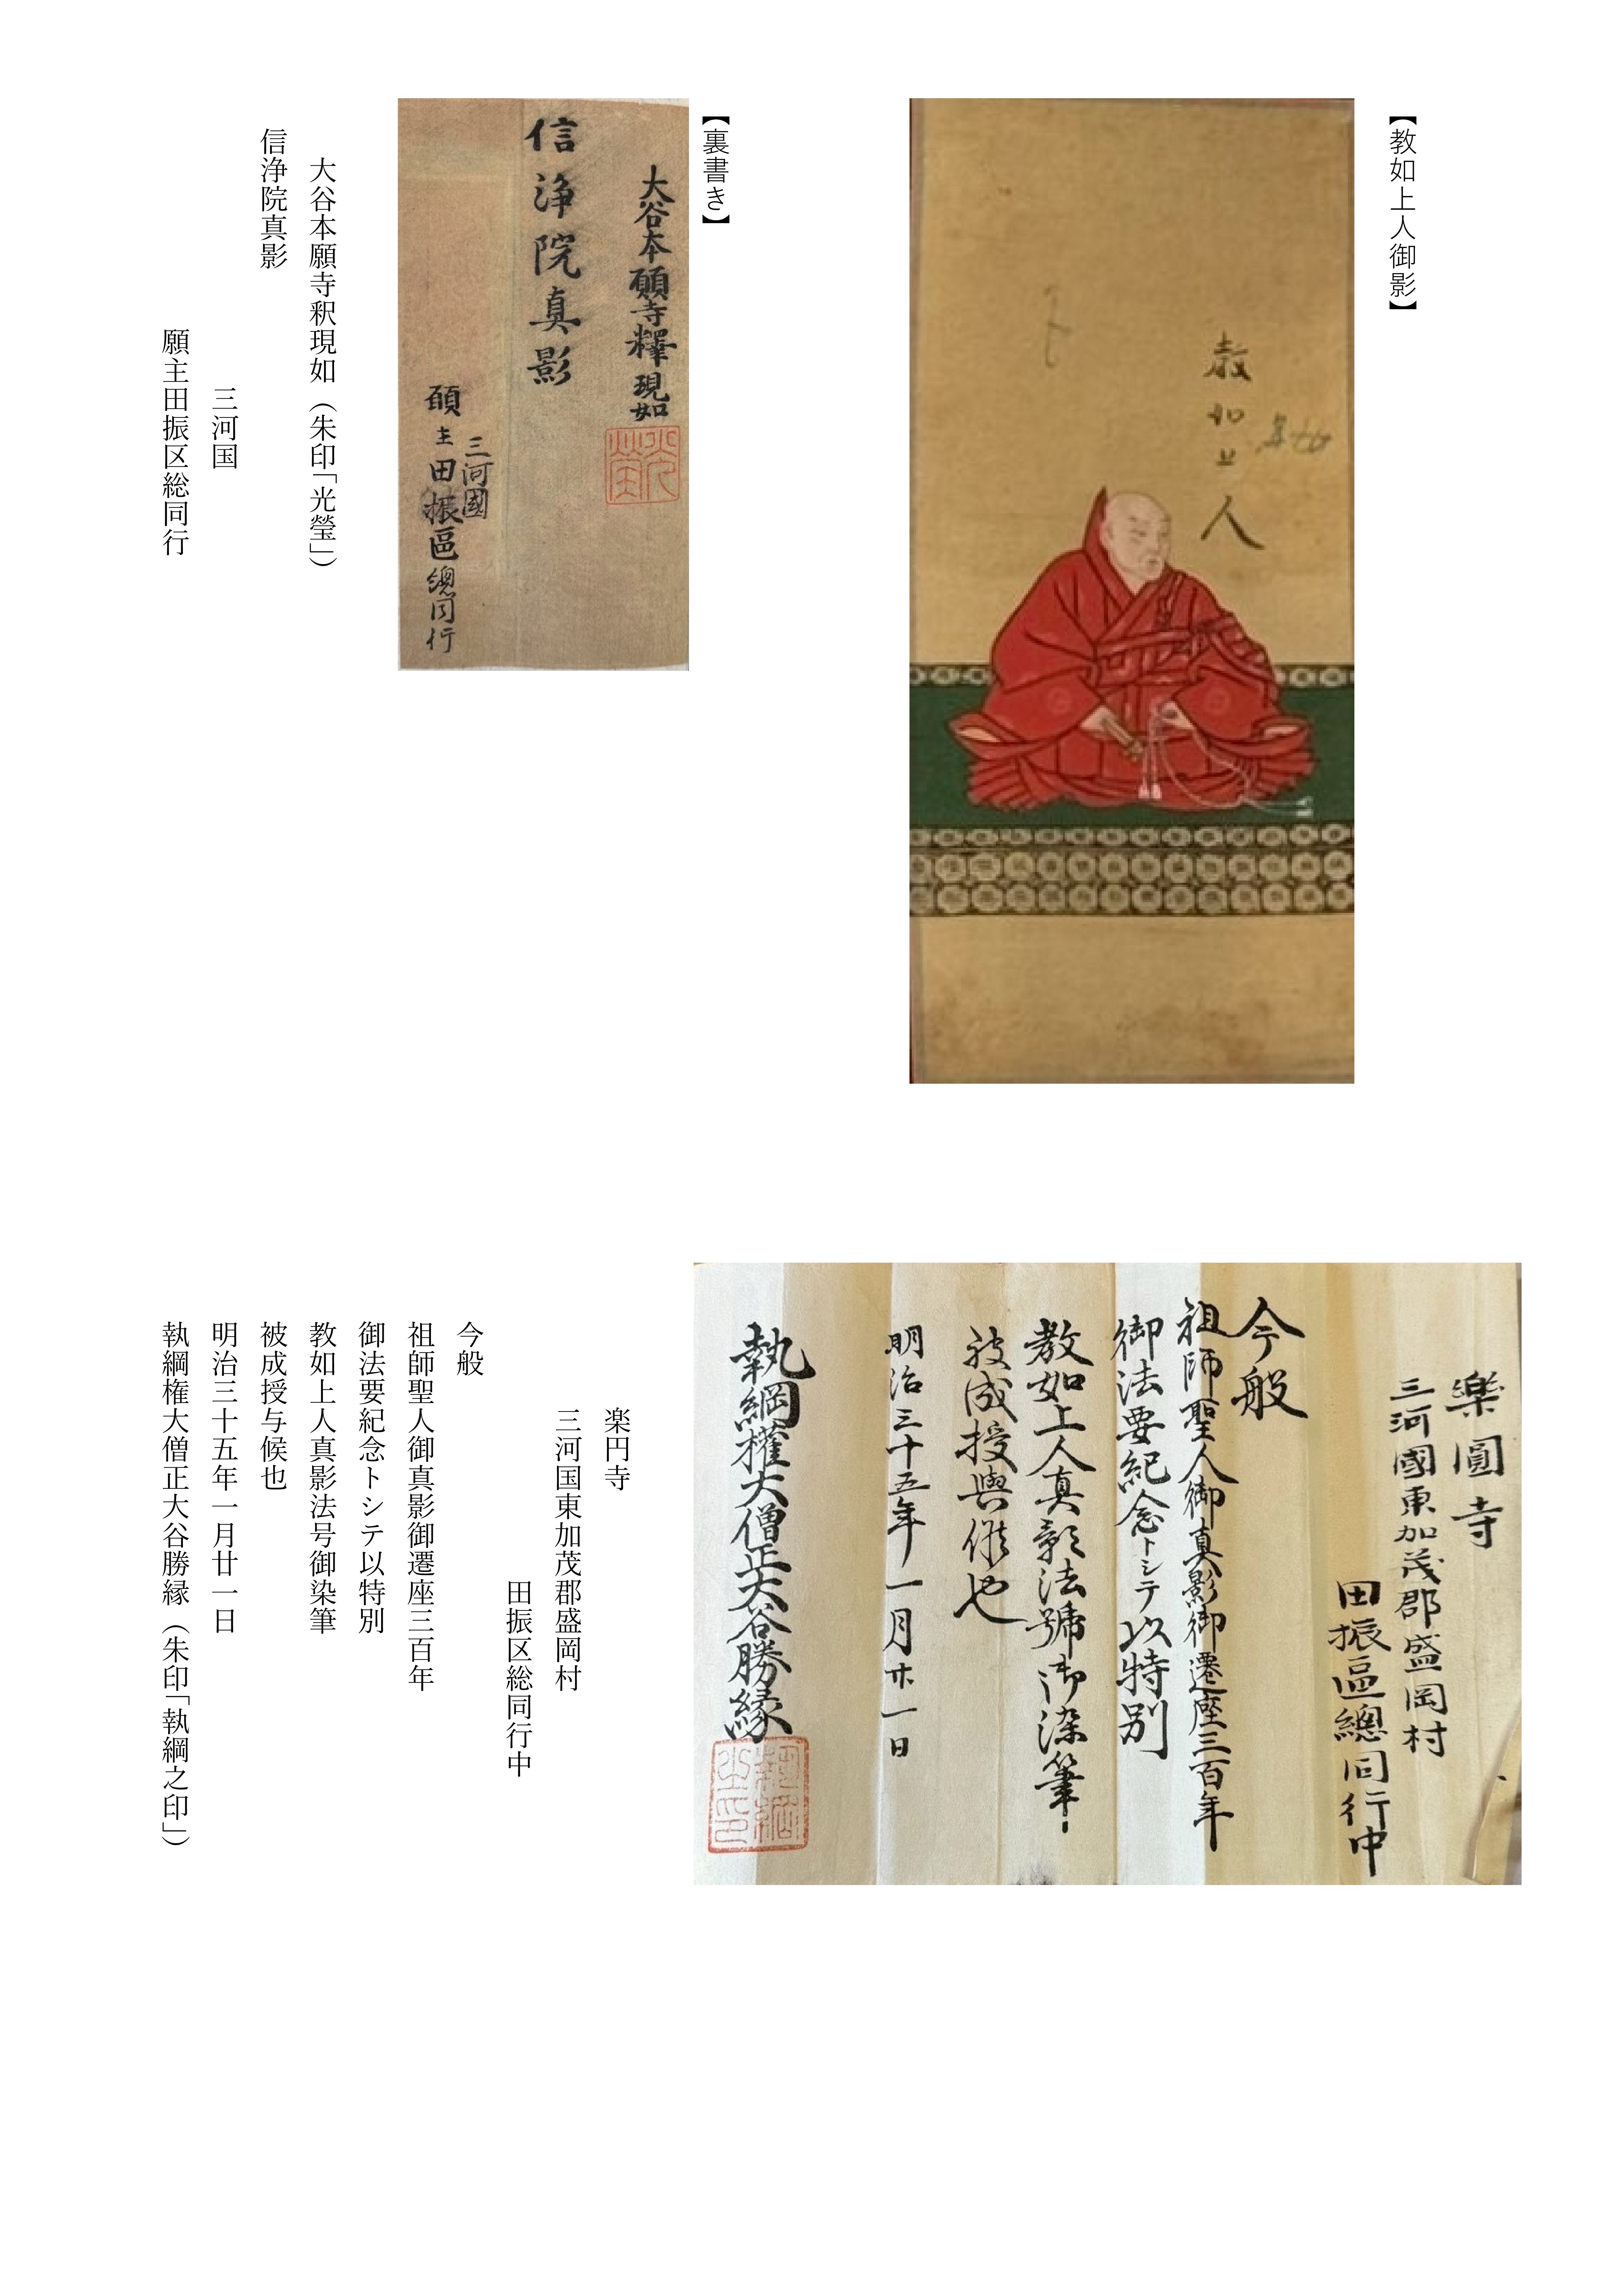 【教如上人御影】
教如上人
【裏書き】
大谷本願寺釋現如
光瑩
信浄院真影
三河國
願主田振區總同行
大谷本願寺釈現如（朱印「光瑩」）
信浄院真影
三河国
願主田振区総同行
樂圓寺
三河國東加茂郡盛岡村
田振區總同行中
今般
祖師聖人御真影御遷座三百年
御法要紀念トシテ以特別
教如上人真影法號御染筆
被成授與候也
明治三十五年一月廿一日
執綱權大僧正大谷勝縁
執綱之印
楽円寺
三河国東加茂郡盛岡村
田振区総同行中
今般
祖師聖人御真影御遷座三百年
御法要紀念トシテ以特別
教如上人真影法号御染筆
被成授与候也
明治三十五年一月廿一日
執綱権大僧正大谷勝縁（朱印「執綱之印」）